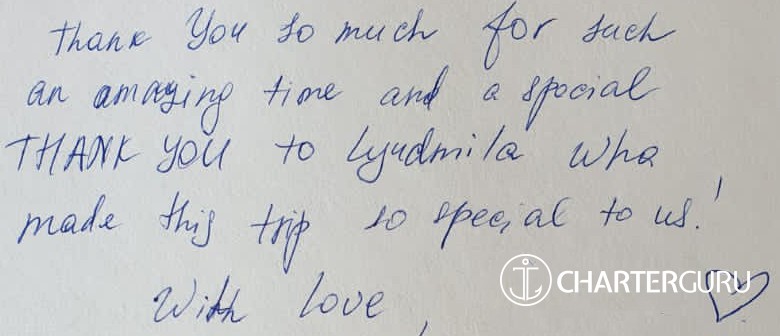 Thank You so much for such
an amazing time and a special
THANK YOU to Lyudmila who
made this trip so special to us!
With love,
CHARTERGURU